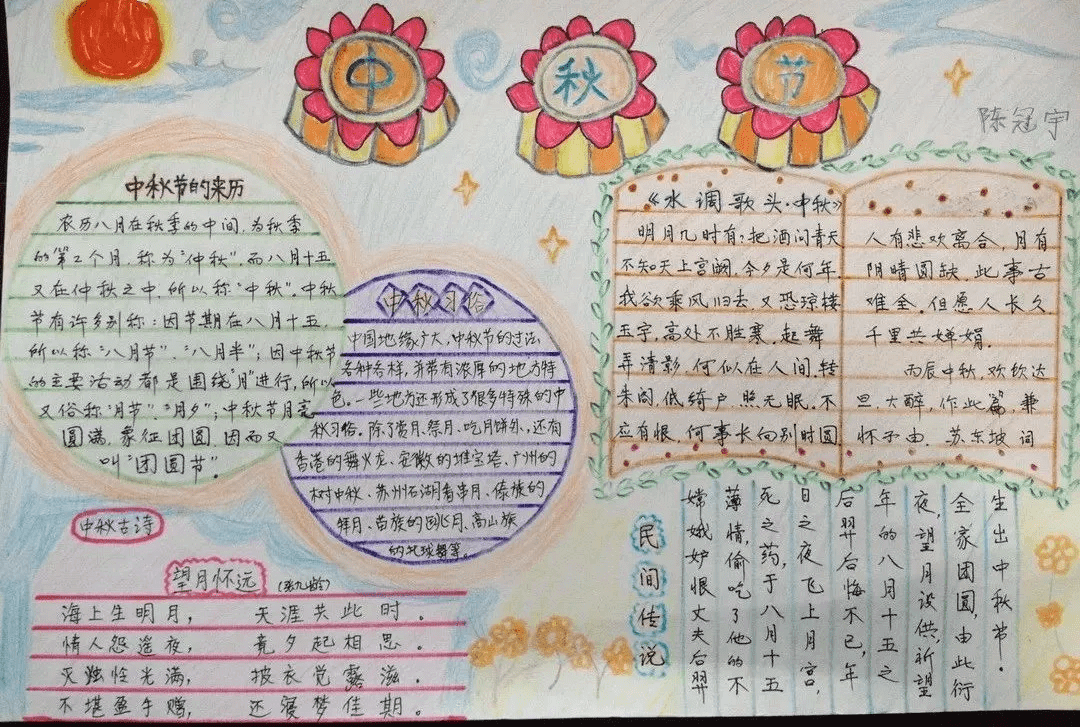 中秋节
陈冠宇
中秋节的来历
农历八月在秋季的中间,为秋季
的第2个月,称为“仲秋”,而八月十五
又在仲秋之中,所以称“中秋”.中秋
节有许多别称:因节期在八月十五,
所以称“八月节”.“八月半”;因中秋节
的主要活动都是围绕“月”进行,所以
又俗称“月节”.“月夕”;中秋节月亮
圆满,象征团圆,因而又
叫“团圆节”.
中秋习俗
中国地缘广大,中秋节的过法
各种各样,并带有浓厚的地方特
色.一些地方还形成了很多特殊的中
秋习俗.除了赏月.祭月.吃月饼外,还有
香港的舞火龙、安徽的堆宝塔、广州的
树中秋、苏州石湖看串月、傣族的
拜月、苗族的跳月、高山族
的托球舞等。
《水调歌头·中秋》
明月几时有?把酒问青天
不知天上宫阙,今夕是何年
我欲乘风归去,又恐琼楼
玉宇,高处不胜寒,起舞
弄清影,何似在人间.转
朱阁,低绮户,照无眠.不
应有恨,何事长向别时圆
人有悲欢离合,月有
阴晴圆缺,此事古
难全.但愿人长久
千里共婵娟.
丙辰中秋,欢饮达
旦,大醉,作此篇,兼
怀子由.苏东坡词
中秋古诗
望月怀远(张九龄)
海上生明月,天涯共此时。
情人怨遥夜,竟夕起相思。
灭烛怜光满,披衣觉露滋。
不堪盈手赠,还寝梦佳期。
民间传说
嫦娥妒恨丈夫后羿
薄情,偷吃了他的不
死之药,于八月十五
日之夜飞上月宫,
后羿后悔不已,年
年的八月十五之
夜,望月设供,祈望
全家团圆,由此衍
生出中秋节.